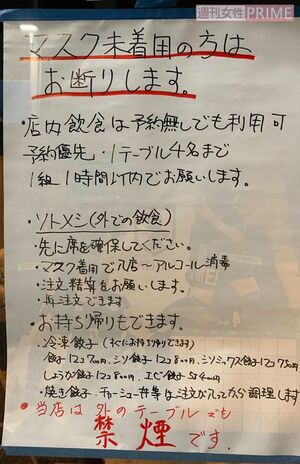 週刊女性PRIME
マスク未着用の方は
お断りします。
・店内飲食は予約無しでも利用可
予約優先・1テーブル4名まで
1組1時間以内でお願いします。
・ソトメシ(外での飲食)
・先に席を確保してください。
・マスク着用で入店〜アルコール消毒
・注文精算をお願いします。
・再注文できます
・お持ち帰りもできます。
・冷凍餃子(すぐにお持ち帰りできます)
餃子12コ700円、シソ餃子12コ800円、
しょうが餃子12コ800円、エビ餃子
・焼き餃子、チャーシュー丼等は注文が入ってから調理します
・当店は外のテーブルでも
禁煙です。